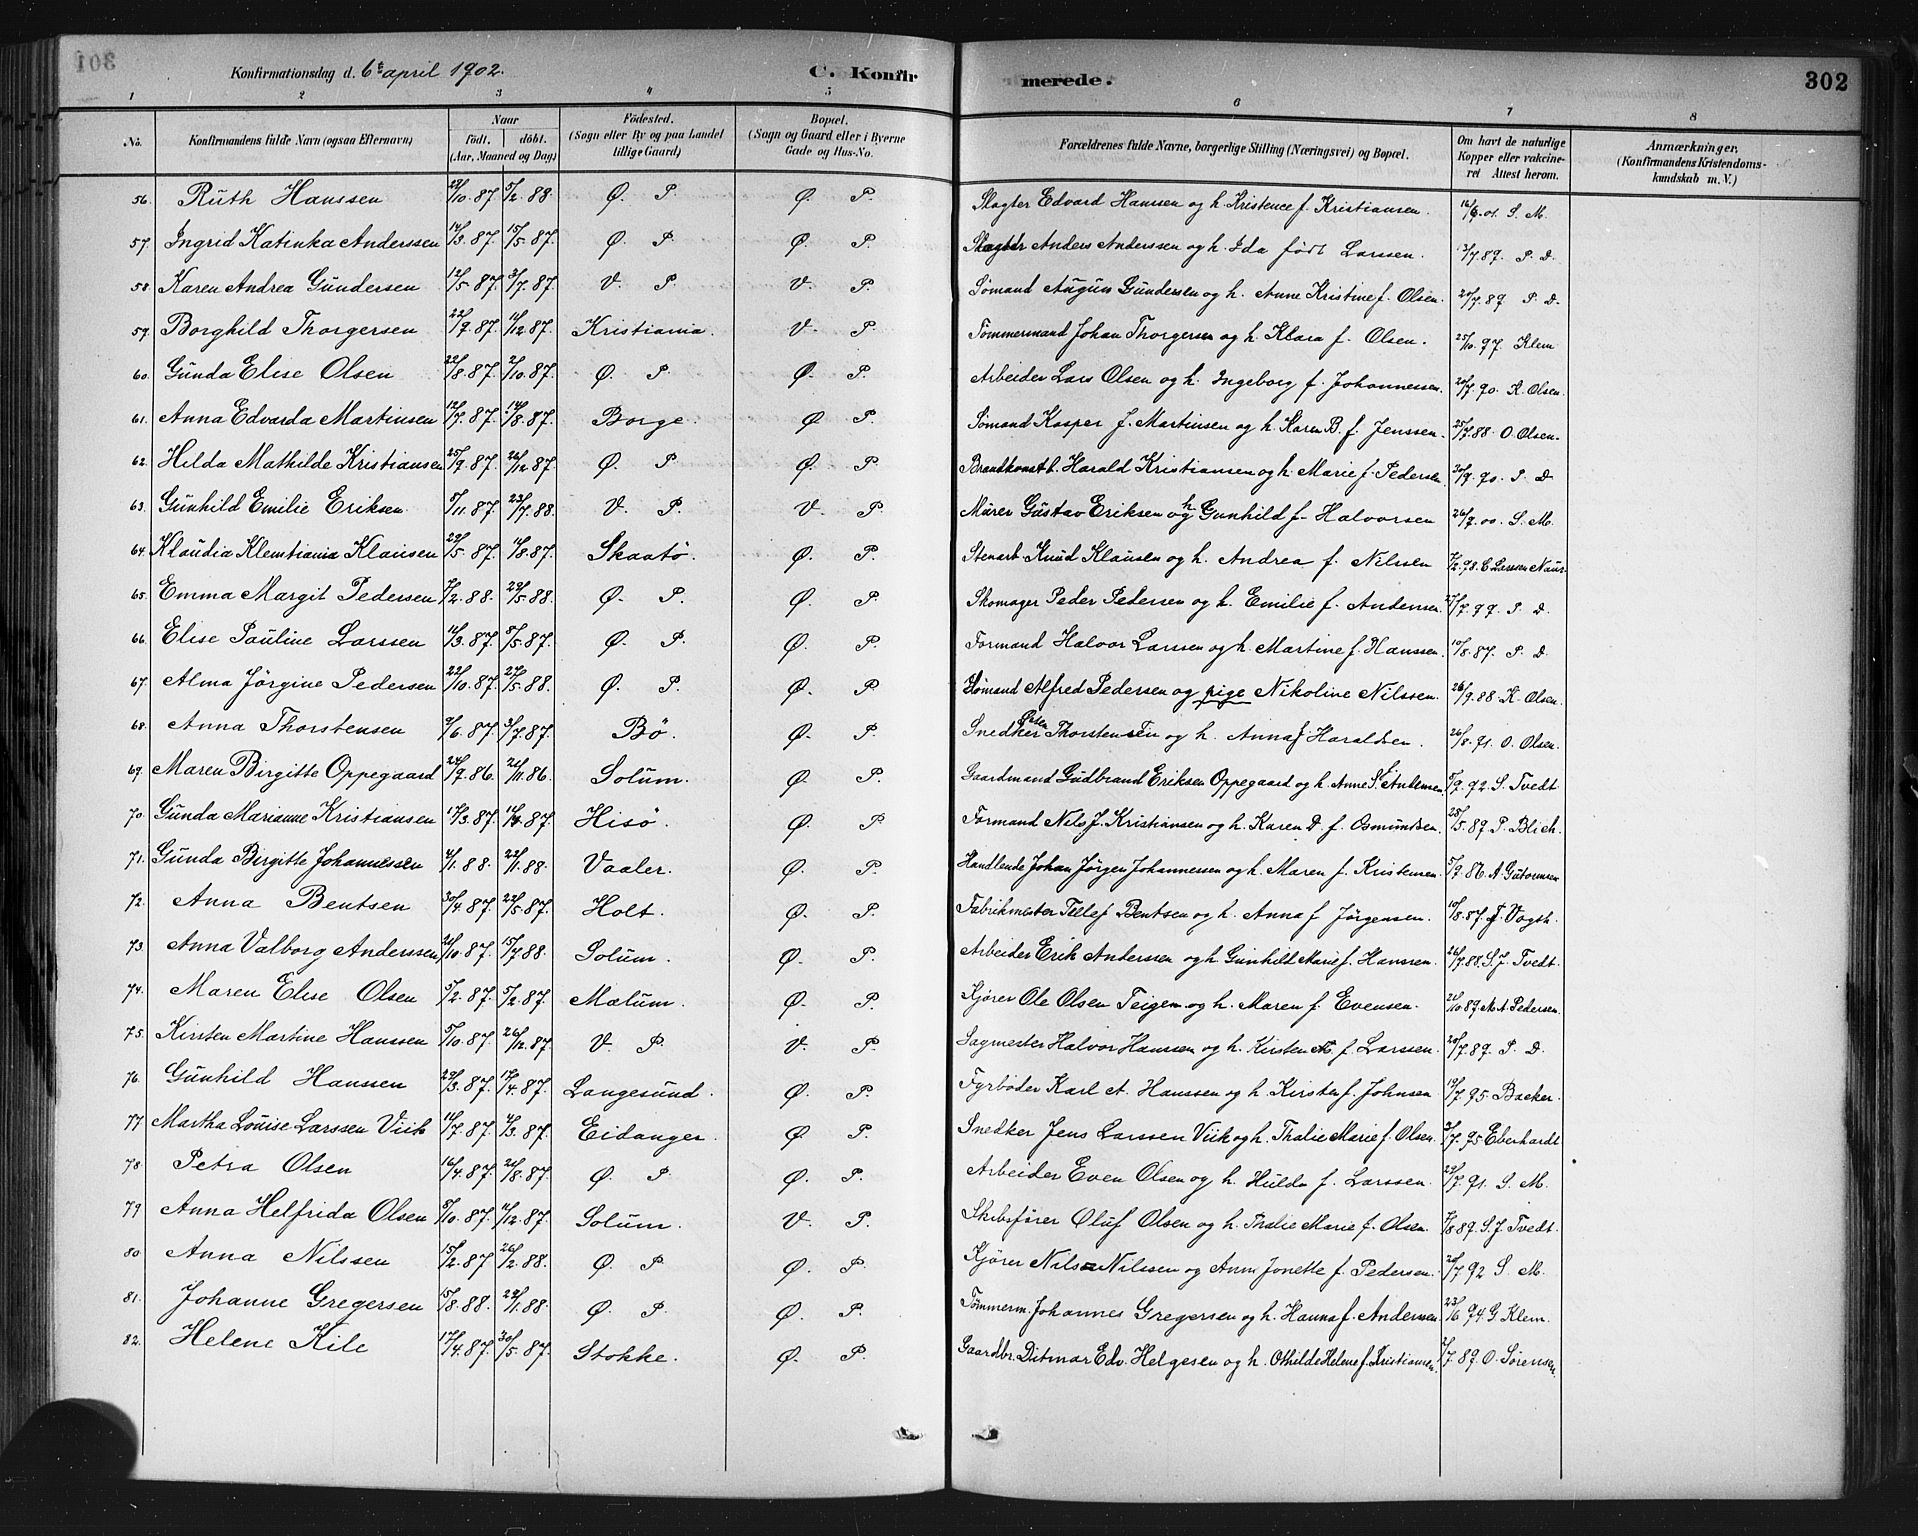 301
Konfirmationsdag d. 6te april 1902. C. Konfir merede. 302
1 2 3 4 5 6 7 8
No. Konfirmandens fulde Navn (ogsaa Efternavn) Naar født. døbt. (Aar, Maaned og Dag) Fødested. (Sogn eller By og paa Landet tillige Gaard) Bopæl. (Sogn og Gaard eller i Byerne Gade og Hus-No. Forældrenes fulde Navne, borgerlige Stilling (Næringsvei) og Bopæl. Om havt de naturlige Kopper eller vakcineret Attest herom. Anmærkninger, (Konfirmandens Kristendomskundskab m. V.)
56. Ruth Hanssen 29/10.87 5/2.88. Ø. P. Ø. P. Slagter Edvard Hanssen og h. Kristence f. Kristiansen. 16/6.01. S. M.
57. Ingrid Katinka Anderssen 14/3.87. 15/5.87. Ø. P. Ø. P. Slagter Anders Anderssen og h. Ida født Larssen. 3/7.89. P. D.
58. Karen Andrea Gundersen 12/5.87. 3/7.87. V. P. V. P. Sømand August Gundersen og h. Anne Kristine f. Olsen. 20/7.89 P. D.
59. Borghild Thorgersen 22/9.87. 11/12.87. Kristiania. V. P. Tømmermand Johan Thorgersen og h. Klara f. Olsen. 25/10.97. Klem
60. Gunda Elise Olsen 22/8.87. 2/10.87. Ø. P. Ø. P. Arbeider Lars Olsen og h. Ingeborg f. Johannessen. 20/7.90. K. Olsen.
61. Anna Edvarda Martinsen 12/7.87. 14/8.87. Borge. Ø P. Sømand Kasper J. Martinsen og h. Karen B. f. Jenssen. 25/7.88. O. Olsen.
62. Hilda Mathilde Kristiansen 25/9.87. 26/12.87. Ø. P Ø. P. Brandkonst. Harald Kristiansen og h. Marie f. Pedersen. 30/9.90. P. D
63. Gunhild Emilie Eriksen 5/11.87. 23/7.88. V. P. V. P. Murer Gustav Eriksen og h Gunhild f. Halvorsen 26/9.00. S. M.
64. Klaudia Klemtiania Klausen 29/5.87. 14/8.87. Skaatø. Ø. P. Stenarb. Knud Klausen og h. Andrea f. Nilssen 7/2.98. C Larssen Naur
65. Emma Margit Pedersen 7/2.88. 29/5.88. Ø. P. Ø. P. Skomager Peder Pedersen og h. Emilie f. Andersen. 27/7.99. P. D.
66. Elise Pauline Larssen 11/3.87. 8/5.87. Ø. P. Ø. P. Formand Halvor Larssen og h. Martine f. Hanssen. 10/8.87. P. D.
67. Alma Jørgine Pedersen 22/10.87. 27/5.88. Ø. P. Ø. P. Sømand Alfred Pedersen og pige Nikoline Nilssen. 26/9.88. K. Olsen.
68. Anna Thorstensen 9/6.87. 3/7.87. Bø. Ø. P. Snedker Thorstensen og h. Anna f Haraldsen. 26/8.91. O. Olsen.
69. Maren Birgitte Oppegaard 24/9.86. 21/11.86. Solum. Ø. P. Gaardmand Gudbrand Eriksen Oppegaard og h. Anne S. f. Andersen. 5/9.92. S. Tvedt
70. Gunda Marianne Kristiansen 17/3.87. 11/4.87. Hisø. Ø. P Formand Nils J. Kristiansen og h. Karen D. f. Osmundsen. 28/5.89. P. Blich.
71. Gunda Birgitte Johannessen 4/1.88. 22/1.88. Vaaler. Ø. P. Handlende Johan Jørgen Johannessen og h. Maren f. Kristensen 5/9.86. A Gutormsen
72. Anna Bentsen 30/4.87. 22/5.87. Holt. Ø. P. Fabrikmester Tellef Bentsen og h. Anna f Jørgensen. 10/8.87. J. Vogth.
73. Anna Valborg Anderssen 21/10.87. 15/7.88. Solum. Ø. P. Arbeider Erik Anderssen og h. Gunhild Marie f. Hanssen. 26/7.88. S. J. Tvedt.
74. Maren Elise Olsen 5/2.87. 5/2.87. Mælum. Ø. P. Kjører Ole Olsen Teigen og h. Maren f. Evensen. 21/10.89. A. Pedersen.
75. Kirsten Martine Hanssen 5/10.87. 26/12.87. V. P. V. P. Sagmester Halvor Hanssen og h. Kirsten M. f. Larssen. 20/7.89. P. D.
76. Gunhild Hanssen 29/3.87. 17/4.87. Langesund. Ø. P. Fyrbøder Karl A. Hanssen og h. Kirsten f. Johnsen 19/7.95 Backer.
77 Martha Louise Larssen Viik 14/7.87. 4/3.87. Eidanger. Ø. P. Snedker Jens Larssen Viik og h. Thalie Marie f. Olsen. 3/7.95 Eberhardt
78. Petra Olsen 16/4.87. 21/8.87. Ø. P. Ø. P. Arbeider Even Olsen og h. Hulda f. Larssen. 23/7.91. S. M.
79 Anna Helfrida Olsen 8/10.87. 11/12.87. Solum. V. P. Skibsfører Oluf Olsen og h. Thalie Marie f. Olsen. 7/8.89. S. J. Tvedt.
80. Anna Nilssen 15/2.87 26/2.88. Ø. P. Ø. P. Kjører Nils Nilssen og Anne Jonette f. Pedersen. 20/7.92 S. M.
81. Johanne Gregersen 15/8.88. 22/1.88. Ø. P. Ø. P. Tømmerm. Johannes Gregersen og h. Hanna f. Anderssen. 23/6.94. G. Klem.
82. Helene Kile 17/4.87. 30/5.87. Stokke. Ø. P. Gaardbr. Ditmar Edv. Helgesen og h. Othilde Helene f. Kristiansen. 2/7.89. O. Sørensen.